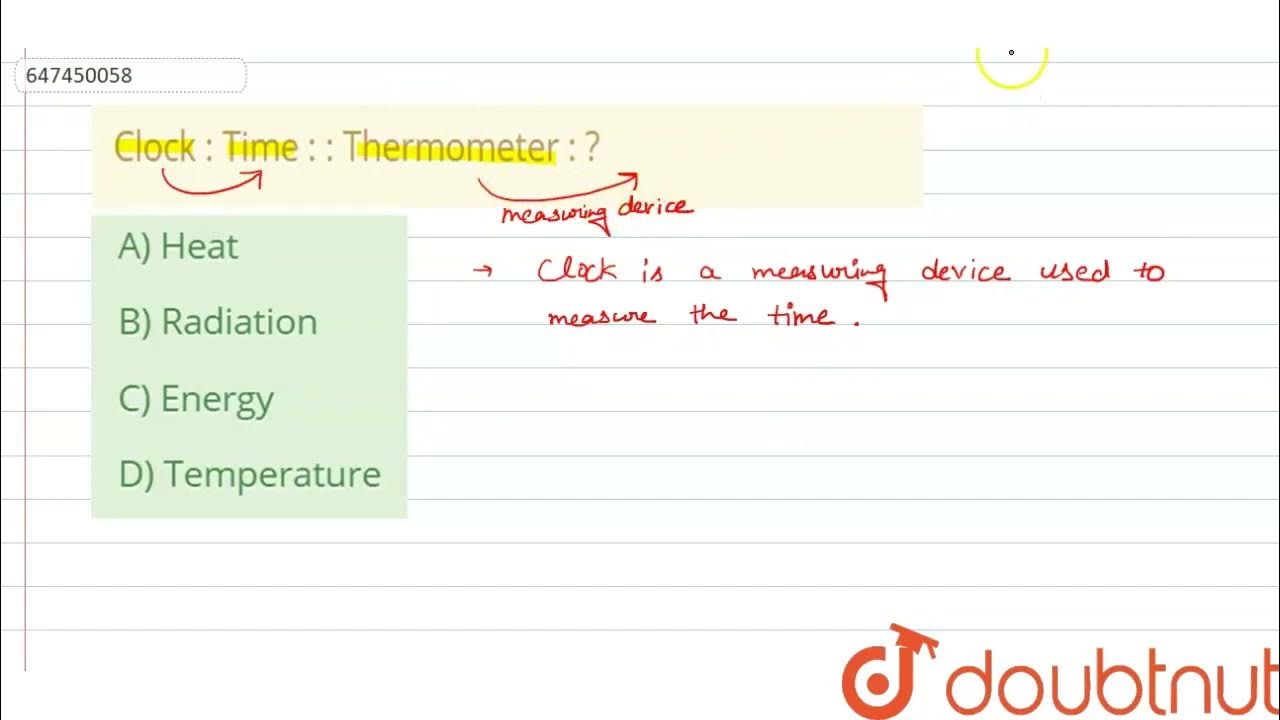 647450058
Clock : Time : : Thermometer : ?
measuring device
A) Heat
→ Clock is a measuring device used to
measure the time.
B) Radiation
C) Energy
D) Temperature
doubtnut